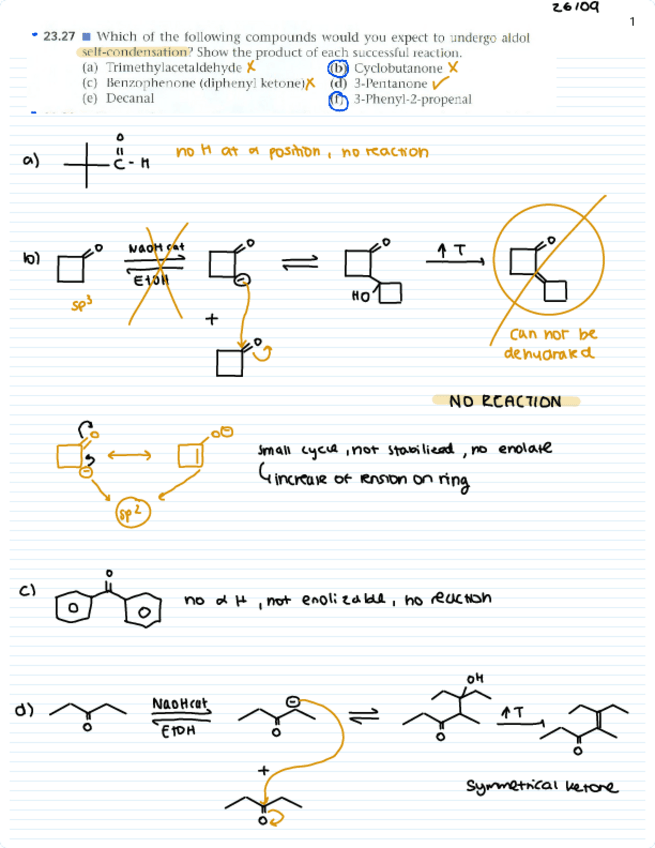 26/09
1
23.27 Which of the following compounds would you expect to undergo aldol
self-condensation? Show the product of each successful reaction.
(a) Trimethylacetaldehyde X (b) Cyclobutanone X
(c) Benzophenone (diphenyl ketone) X (d) 3-Pentanone ✓
(e) Decanal (f) 3-Phenyl-2-propenal
a) O C - H no H at α position, no reaction
b) O NaOH cat EtOH O ⊖ O HO ↑T O
sp³
+
O
can not be
dehydrated
NO REACTION
O ⊖ O⊖ small cycle, not stabilized, no enolate
↳ increase of tension on ring
sp²
c) O no α H, not enolizable, no reaction
d) O NaOH cat EtOH ⊖ O OH O ↑T O
+
O
symmetrical ketone